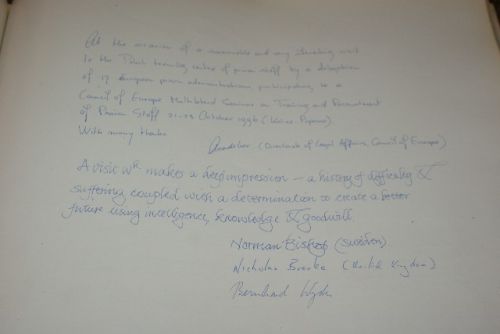 At the occasion of a memorable and very interesting visit
to the Polish training centre of prison staff by a delegation
of 17 European prison administrations participating in a
Council of Europe Multilateral Seminar on Training and Recruitment
of Prison Staff 21-23 October 1996
With many thanks
(Directorate of Legal Affairs, Council of Europe)
A visit wh makes a deep impression – a history of difficulty &
suffering coupled with a determination to create a better
future using intelligence, knowledge & goodwill.
Norman Bishop (Sweden)
Nicholas (United Kingdom)
Bernhard